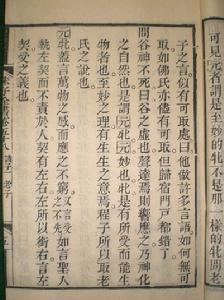 可見元牝謂是至妙的牝不是那一樣的牝問老
子之言似有可取處曰他做許多言語如何無可
取如佛氏亦儘有可取但歸宿門戶都錯了
問谷神不死曰谷之虛也聲達焉則響應之乃神化
之自然也是謂元牝元妙也牝是有所受而能生
物者也至妙之理有生生之意焉程子所以取老
氏之說也
元牝蓋言萬物之感而應之不窮又言受而不先如言聖人
執左契而不責於人契有左右左所以銜右言左
契受之義也
子全書卷五十八 諸子一 老子